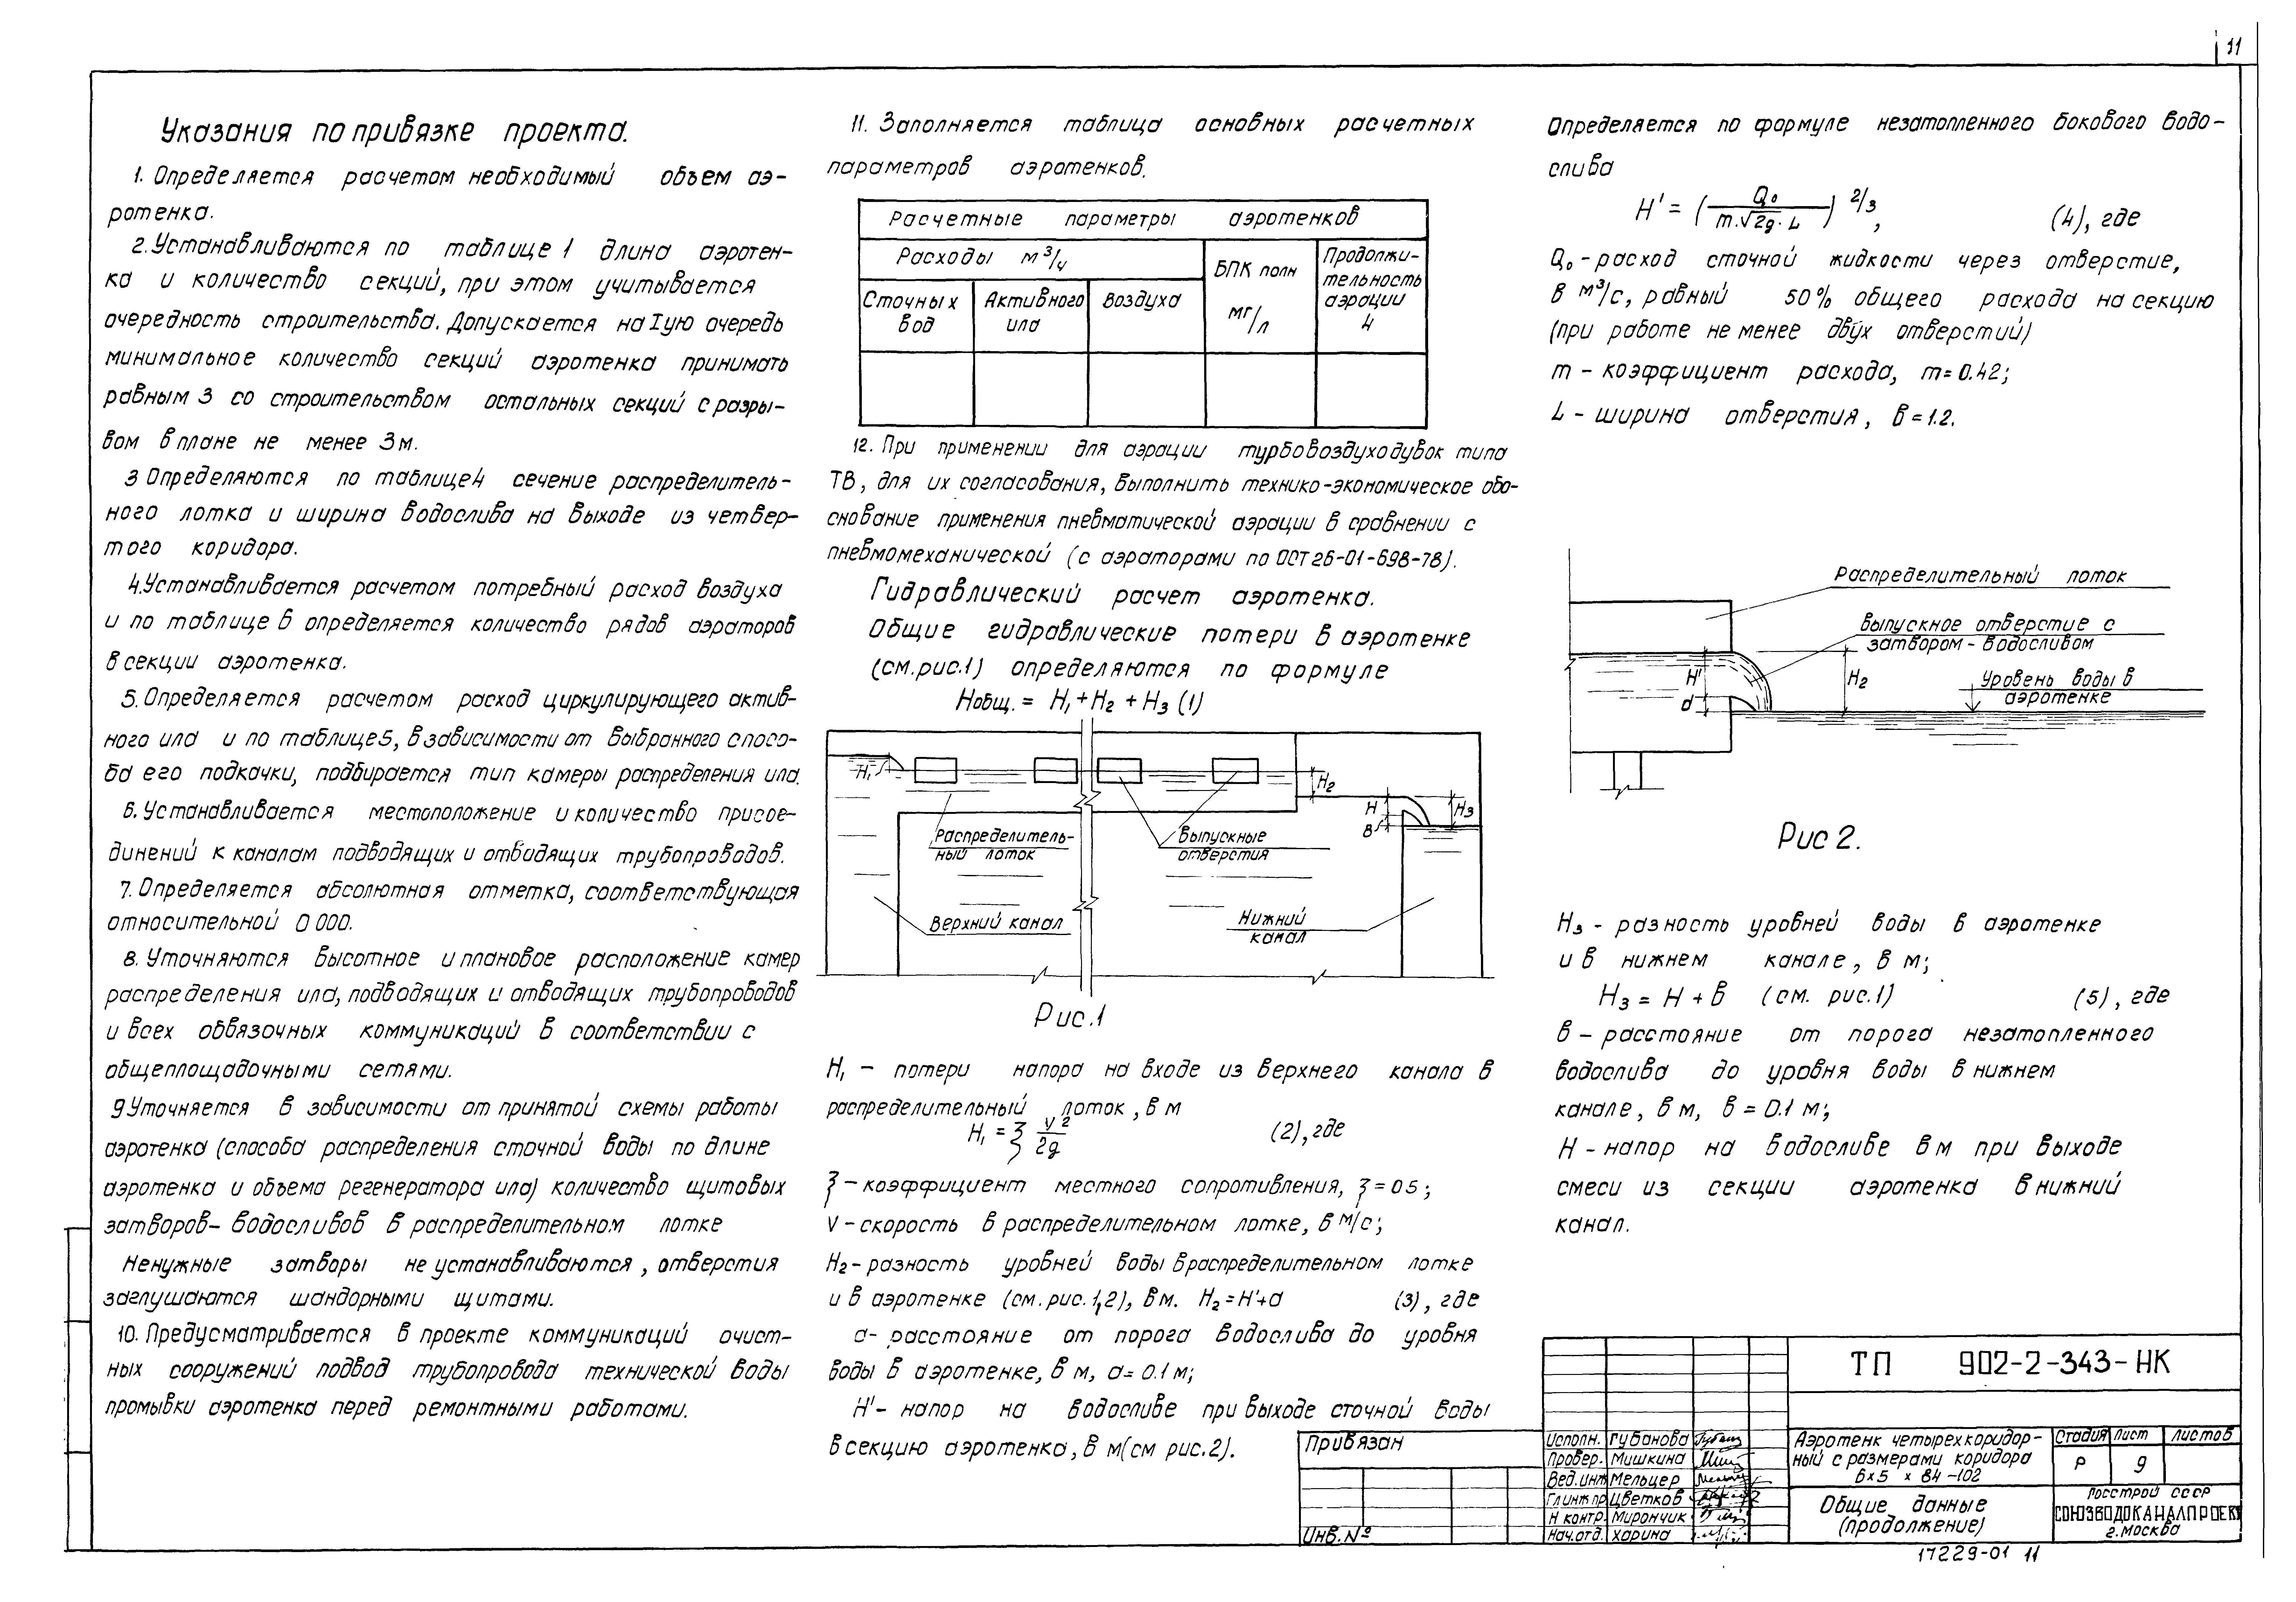 11
Указания по привязке проекта.
1. Определяется расчетом необходимый объем аэ-
ротенка.
2. Устанавливаются по таблице 1 длина аэротен-
ка и количество секций, при этом учитывается
очередность строительства. Допускается на Iую очередь
минимальное количество секций аэротенка принимать
равным 3 со строительством остальных секций с разры-
вом в плане не менее 3 м.
3 Определяются по таблице 4 сечение распределитель-
ного лотка и ширина водослива на выходе из четвер-
того коридора.
4. Устанавливается расчетом потребный расход воздуха
и по таблице 6 определяется количество рядов аэраторов
в секции аэротенка.
5. Определяется расчетом расход циркулирующего актив-
ного ила и по таблице 5, в зависимости от выбранного спосо-
ба его подкачки, подбирается тип камеры распределения ила.
6. Устанавливается местоположение и количество присое-
динений к каналам подводящих и отводящих трубопроводов.
7. Определяется абсолютная отметка, соответствующая
относительной 0 000.
8. Уточняются высотное и плановое расположение камер
распределения ила, подводящих и отводящих трубопроводов
и всех обвязочных коммуникаций в соответствии с
общеплощадочными сетями.
9 Уточняется в зависимости от принятой схемы работы
аэротенка (способа распределения сточной воды по длине
аэротенка и объема регенератора ила) количество щитовых
затворов-водосливов в распределительном лотке
Ненужные затворы не устанавливаются, отверстия
заглушаются шандорными щитами.
10. Предусматривается в проекте коммуникаций очист-
ных сооружений подвод трубопровода технической воды
промывки аэротенка перед ремонтными работами.
11. Заполняется таблица основных расчетных
параметров аэротенков.
Расчетные параметры аэротенков
Расходы м³/ч
БПК полн мг/л
Продолжи-
тельность
аэрации
ч
Сточных вод
Активного ила
Воздуха
12. При применении для аэрации турбовоздуходувок типа
ТВ, для их согласования, выполнить технико-экономическое обо-
снование применения пневматической аэрации в сравнении с
пневмомеханической (с аэраторами по ОСТ 26-01-698-78).
Гидравлический расчет аэротенка.
Общие гидравлические потери в аэротенке
(см. рис.1) определяются по формуле
Hобщ. = H₁ + H₂ + H₃ (1)
H₁
H₂
H
H₃
в
Распределитель-
ный лоток
Выпускные
отверстия
Верхний канал
Нижний
канал
Рис.1
H₁ – потери напора на входе из верхнего канала в
распределительный лоток, в м
H₁ = ξ V²/2g (2), где
ξ – коэффициент местного сопротивления, ξ = 0 5;
V – скорость в распределительном лотке, в м/с;
H₂ – разность уровней воды в распределительном лотке
и в аэротенке (см. рис. 1,2), в м. H₂ = H'+а (3), где
а – расстояние от порога водослива до уровня
воды в аэротенке, в м, а = 0.1 м;
H' – напор на водосливе при выходе сточной воды
в секцию аэротенка, в м (см рис. 2).
Определяется по формуле незатопленного бокового водо-
слива
H' = (Q₀/m·√2g·L)^2/3, (4), где
Q₀ – расход сточной жидкости через отверстие,
в м³/с, равный 50% общего расхода на секцию
(при работе не менее двух отверстий)
m – коэффициент расхода, m = 0.42;
L – ширина отверстия, в = 1.2.
Распределительный лоток
Выпускное отверстие с
затвором-водосливом
H'
d
H₂
Уровень воды в
аэротенке
Рис 2.
H₃ – разность уровней воды в аэротенке
и в нижнем канале, в м;
H₃ = H + в (см. рис.1) (5), где
в – расстояние от порога незатопленного
водослива до уровня воды в нижнем
канале, в м, в = 0.1 м;
H – напор на водосливе в м при выходе
смеси из секции аэротенка в нижний
канал.
Привязан
Инв. №
Исполн. Губанова
Провер. Мишкина
Вед.инж Мельцер
Гл инж пр Цветков
Н контр. Мирончик
Нач.отд. Харина
ТП 902-2-343-НК
Аэротенк четырехкоридор-
ный с размерами коридора
6×5×84-102
Стадия Лист Листов
Р 9
Общие данные
(продолжение)
Госстрой СССР
СОЮЗВОДОКАНАЛПРОЕКТ
г. Москва
17229-01 11